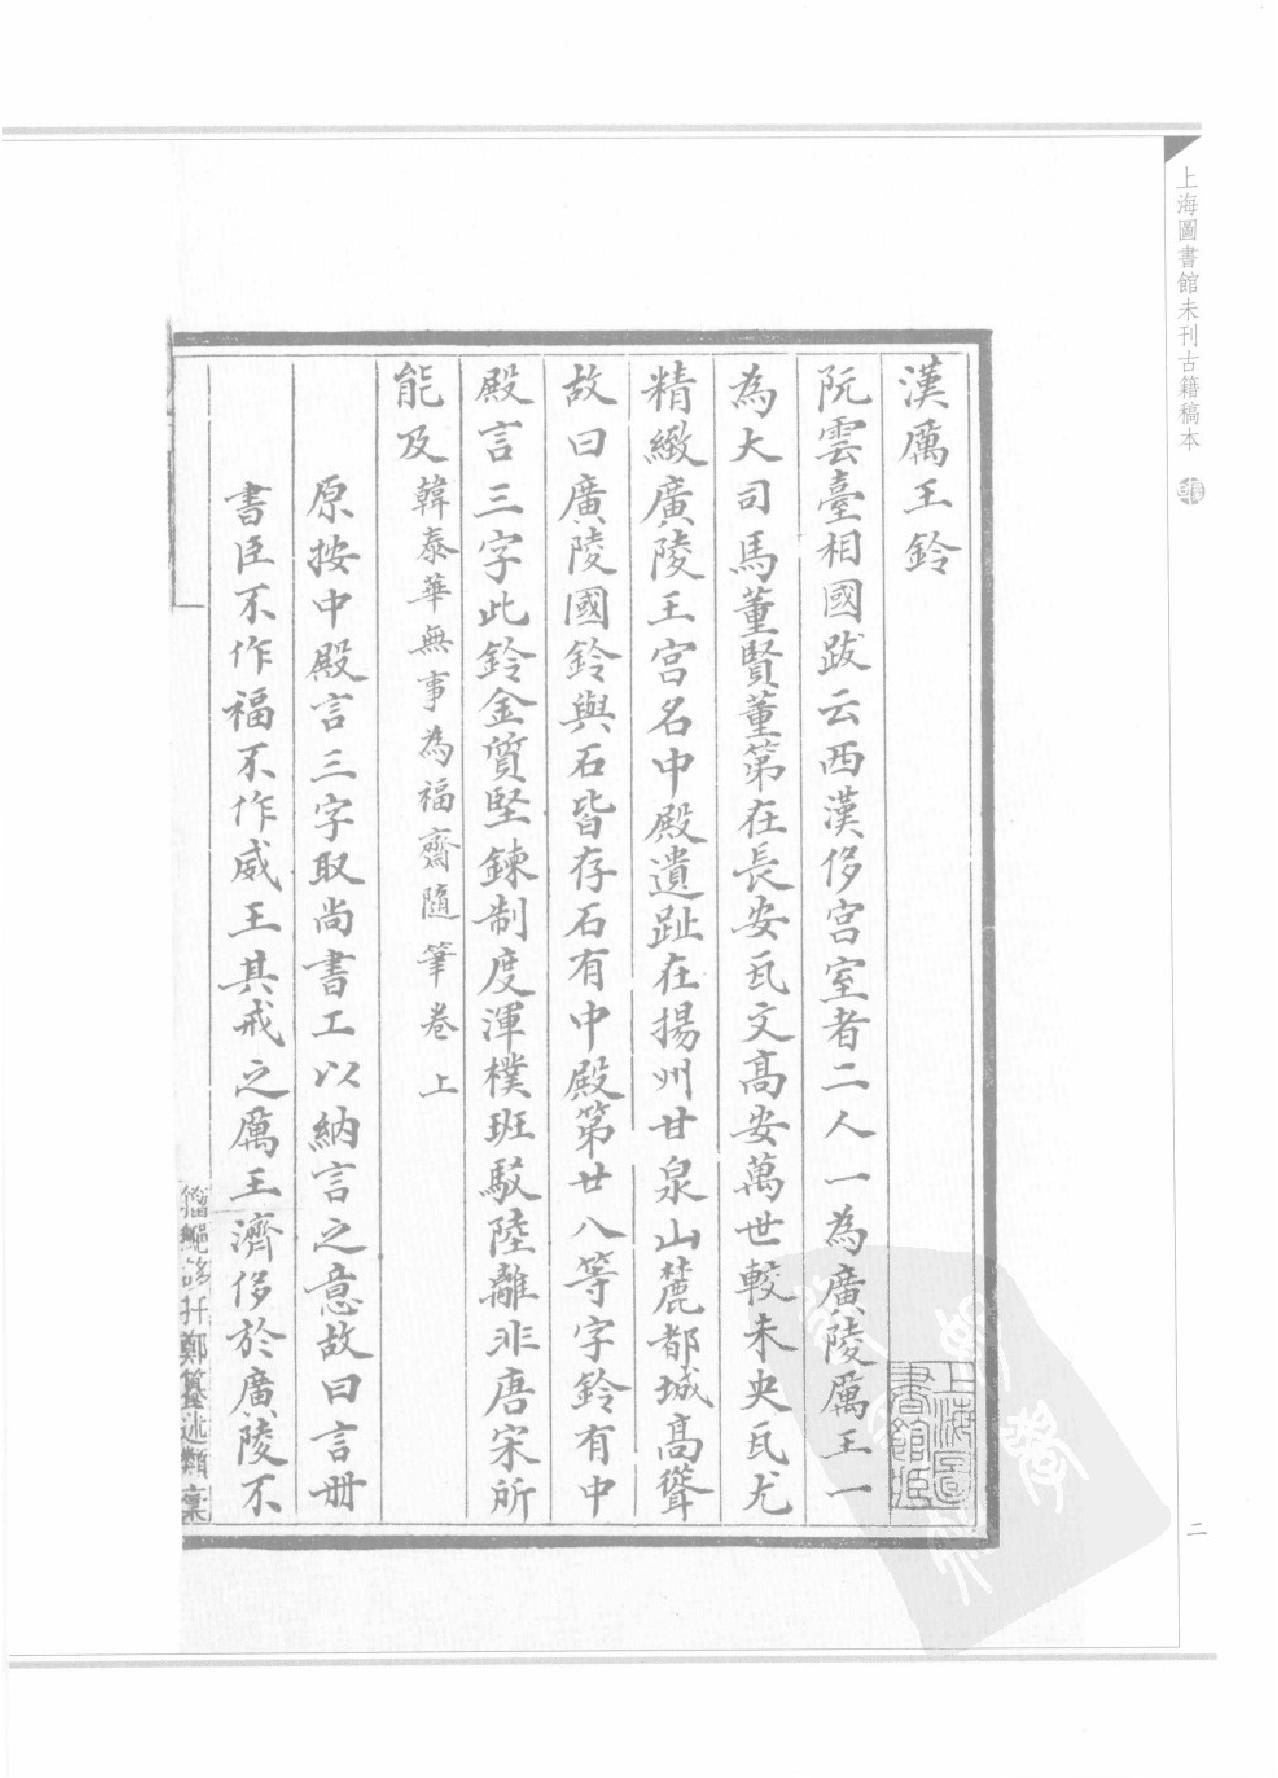 上海圖書館未刊古籍稿本
二
漢厲王鈴
阮雲臺相國跋云西漢侈宮室者二人一為廣陵厲王一
為大司馬董賢董第在長安瓦文高安萬世較未央瓦尤
精緻廣陵王宮名中殿遺趾在揚州甘泉山麓都城高聳
故曰廣陵國鈴與石皆存石有中殿第廿八等字鈴有中
殿言三字此鈴金質堅鍊制度渾樸班駁陸離非唐宋所
能及韓泰華無事為福齋隨筆卷上
原按中殿言三字取尚書工以納言之意故曰言冊
書臣不作福不作威王其戒之厲王濟侈於廣陵不
鄭簋述類稾